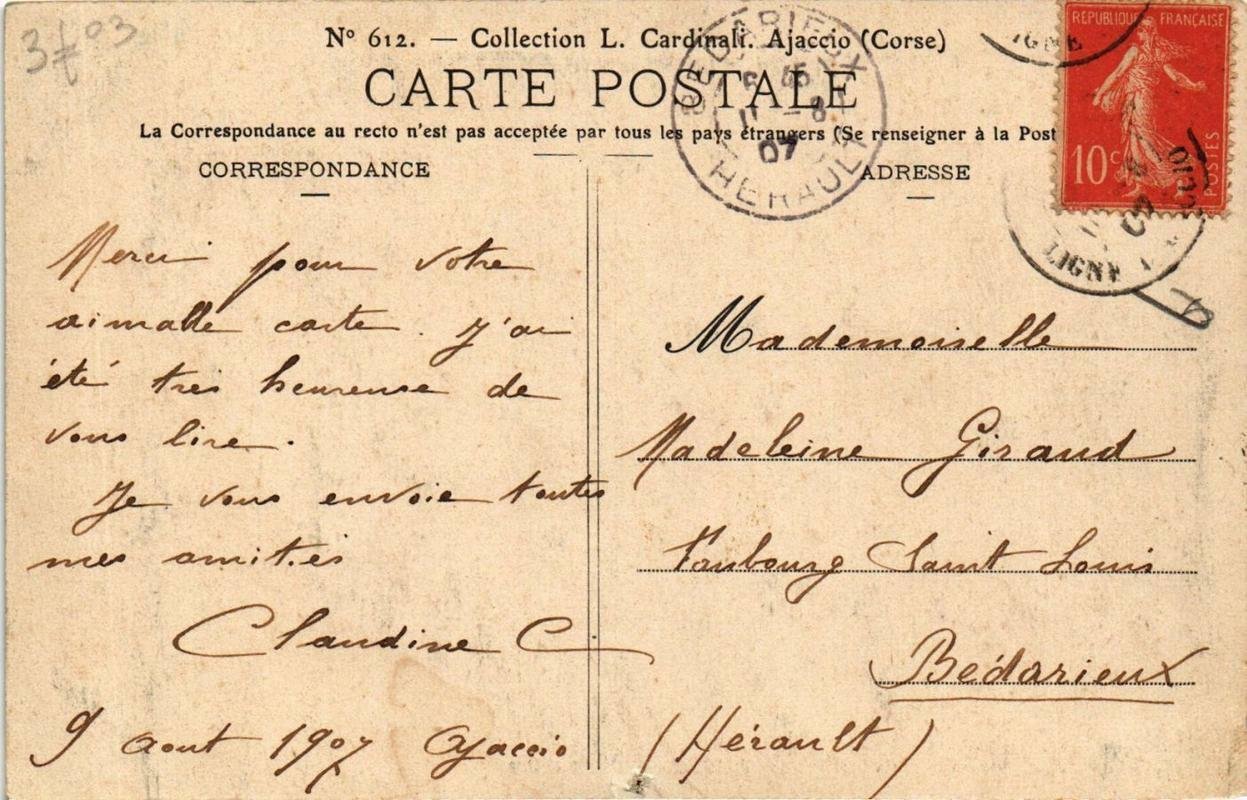 3f03
N° 612. — Collection L. Cardinali. Ajaccio (Corse)
CARTE POSTALE
La Correspondance au recto n'est pas acceptée par tous les pays étrangers (Se renseigner à la Post
CORRESPONDANCE
ADRESSE
REPUBLIQUE FRANÇAISE
10c
POSTES
BEDARIEUX
11 - 8
07
HERAULT
LIGNE
LIGNE
Merci pour votre
aimable carte. J'ai
été très heureuse de
vous lire.
Je vous envoie toutes
mes amitiés
Claudine C
9 aout 1907 Ajaccio
Mademoiselle
Madeleine Giraud
Faubourg Saint Louis
Bédarieux
(Hérault)